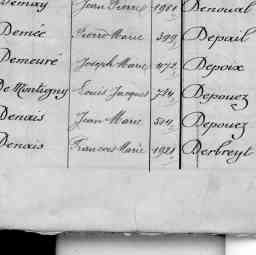 Demay Jean Pierre 1981 Denoual
Demée Pierre Marie 399 Depail
Demeuré Joseph Marie 472 Depoix
De Montigny Louis Jacques 734 Depouez
Denais Jean Marie 504 Depouez
Denais Francois Marie 1921 Derbreyt